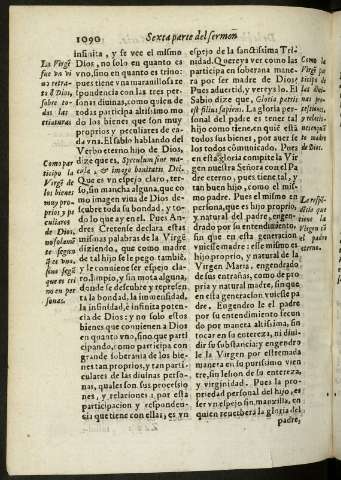 1090
Sexta parte del sermon
La Virgẽ
fue vn vi
uo retra-
to d̃ Dios,
sobre to-
das las
criaturas
Como par
ticipo la
Virgẽ de
los bienes
muy pro-
prios y pe
culiares
de Dios,
no solamẽ
te segun
q̃ es vno,
sino segũ
que es tri
no en per
sonas.
infinita, y se vee el mismo
Dios, no solo en quanto es
vno, sino en quanto es trino:
pues tiene vna marauillosa re
spondencia con las tres per-
sonas diuinas, como quien de
todas participa altissimo mo
do los bienes que son muy
proprios y peculiares de ca-
da vna. El sabio hablando del
Verbo eterno hijo de Dios,
dize que es, Speculum sine ma-
cula, & imago bonitatis Dei.
Que es vn espejo claro, ter-
so, sin mancha alguna, que co
mo imagen viua de Dios de-
scubre toda su bondad, y to-
do lo que ay en el. Pues An-
dres Cretense declara estas
mismas palabras de la Virgẽ
diziendo, que como madre
de tal hijo se le pego tambiẽ,
y le conuiene ser espejo cla-
ro, limpio, y sin mota alguna,
donde se descubre y represen
ta la bondad, la inmensidad,
la infinidad, è infinita poten-
cia de Dios: y no solo estos
bienes que conuienen a Dios
en quanto vno, sino que parti
cipando, como participa con
grande soberania de los bie-
nes tan proprios, y tan parti-
culares de las diuinas perso-
nas, quales son sus processio
nes, y relaciones: por esta
participacion y responden-
cia que tiene con ellas, es vn
espejo de la sanctissima Tri-
nidad. Quereys ver como las
participa en soberana mane-
ra por ser madre de Dios?
Pues aduertid, y vereys lo. El
Sabio dize que, Gloria patris
est filius sapiens. La gloria per-
sonal del padre es tener tal
hijo como tiene, en quié està
todos sus bienes, por auer se
los todos cõmunicado. Pues
en esta gloria compite la Vir
gen nuestra Señora con el Pa
dre eterno, pues tiene tal, y
tan buen hijo, como el mis-
mo padre. Pues el mismo en
persona, que es hijo proprio,
y natural del padre, engen-
drado por su entendimiento,
sin que en esta generacion
vuiesse madre: esse mismo es
hijo proprio, y natural de la
Virgen Maria, engendrado
de sus entrañas, como de pro
pria y natural madre, sin que
en esta generacion vuiesse pa
dre. Engendro le el padre
por su entendimiento fecun
do por manera altissima, sin
tocar en su entereza, ni diui-
dir su substancia: y engendro
le la Virgen por estremada
manera en su purissimo vien
tre, sin lesion de su entereza,
y virginidad. Pues la pro-
priedad personal del hijo, es
ser vn espejo sin manzilla, en
quien reuerbera la gloria del
padre,
Como la
Virgẽ par
ticipo de
las diui-
nas pro-
cessiones,
y relacio-
nes, por
ser ma-
dre de
Dios.
La respe-
ctiõ que
tiene la
Virgen cõ
el padre
eterno.